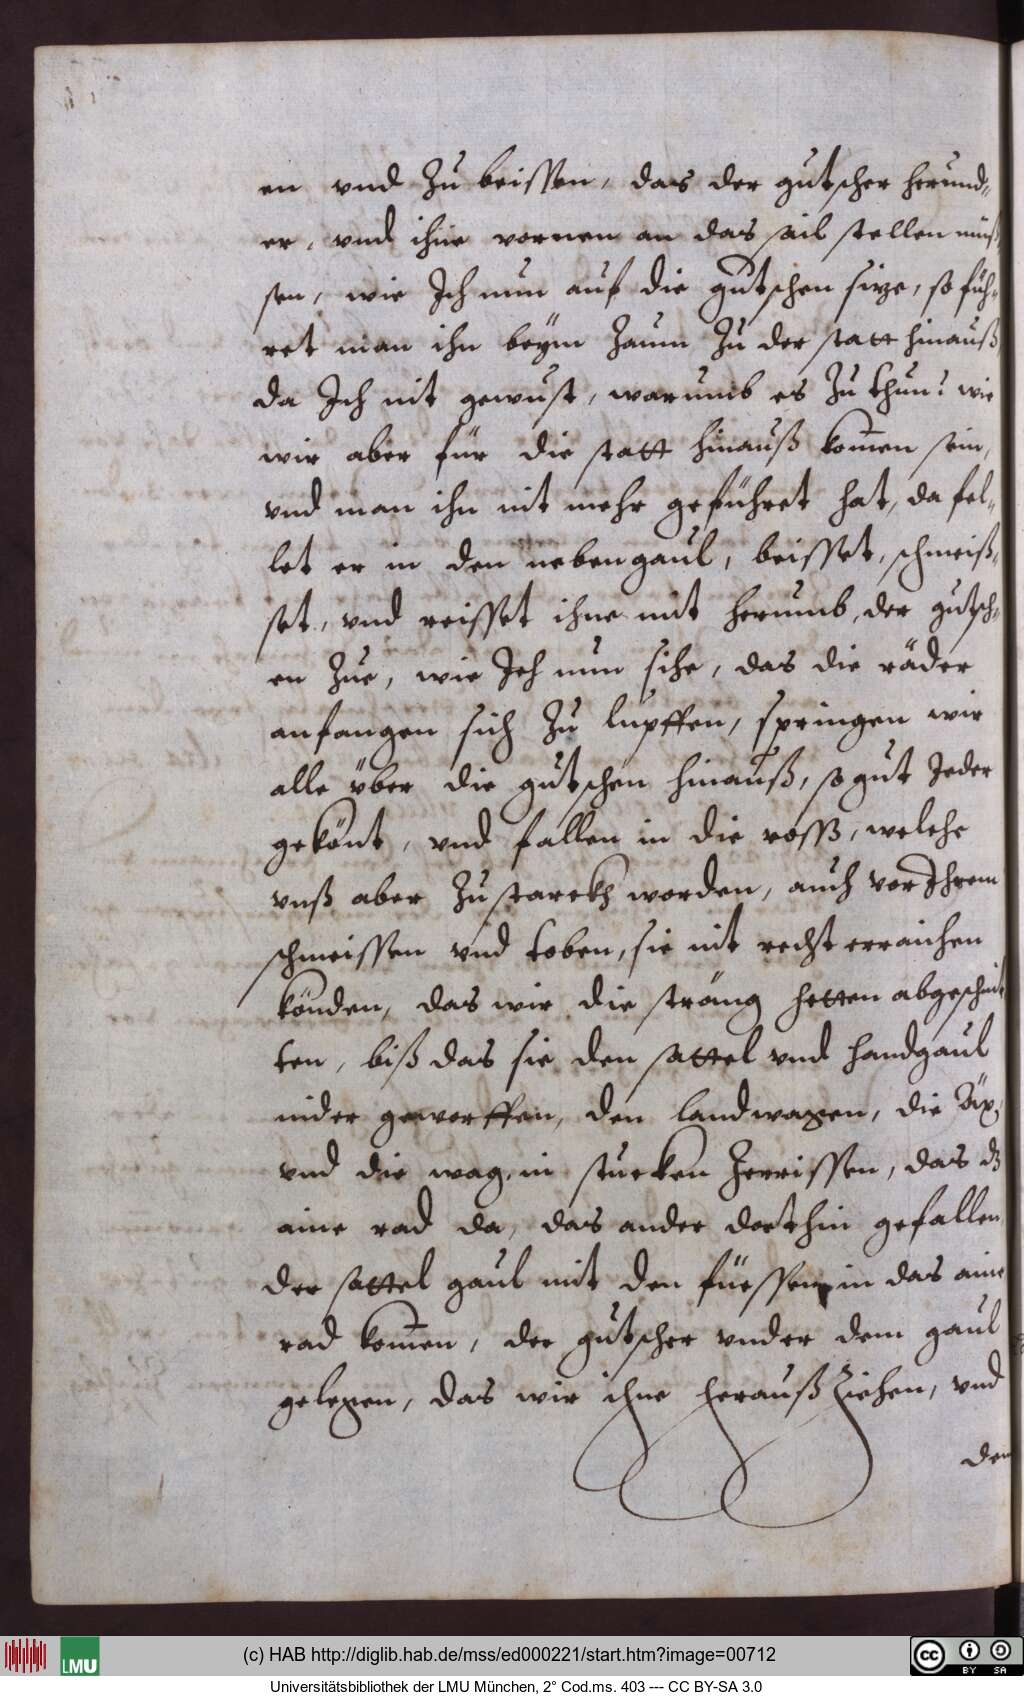 en vnd Zu beissen, das der gutscher herund-
er, vnd ihne vornen an das sail stellen müeß-
sen, wie Ich nun auf die gutschen size, so füh-
ret man ihn beym Zaum Zu der statt hinauß,
da Ich nit gewust, warumb es Zu thun? wie
wir aber für die statt hinauß kom̄en sein,
vnd man ihn nit mehr geführet hat, da fel-
let er in den neben gaul, beisset, schmeiß-
set, vnd reisset ihne mit herumb, der gutsch-
en Zue, wie Ich nun sihe, das die räder
anfangen sich Zu lupffen, springen wir
alle über die gutschen hinauß, so gut Jeder
gekönt, vnd fallen in die rosß, welche
vnß aber Zu starckh worden, auch vor Ihrem
schmeissen vnd toben, sie nit recht erraichen
könden, das wir die sträng hetten abgeschnit
ten, biß das sie den sattel vnd handgaul
nider geworffen, den landwagen, die Äx,
vnd die wag, in stucken Zerrissen, das dz
aine rad da, das ander dorthin gefallen
der sattel gaul mit den füessen in das aine
rad kom̄en, der gutscher vnder dem gaul
gelegen, das wir ihne herauß Ziehen, vnd
den
(c) HAB http://diglib.hab.de/mss/ed000221/start.htm?image=00712
LMU
cc BY SA
Universitätsbibliothek der LMU München, 2° Cod.ms. 403 --- CC BY-SA 3.0